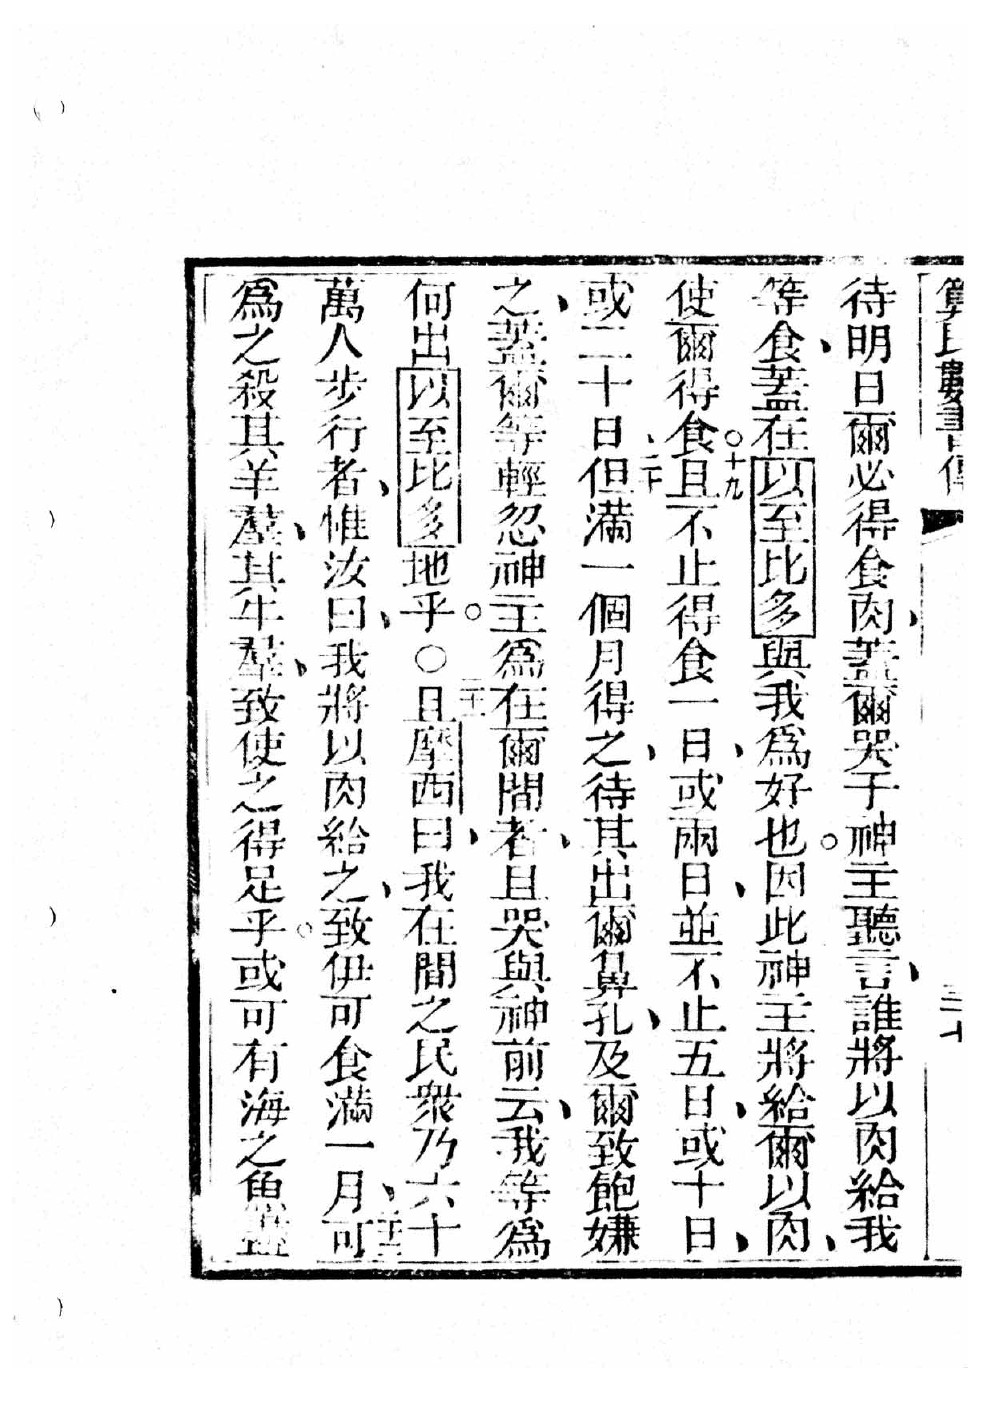 算民數書傳
三十
待明日爾必得食肉、蓋爾哭于神主聽言、誰將以肉給我
等食、蓋在以至比多與我爲好也。因此神主將給爾以肉、
使爾得食。十九且不止得食一日、或兩日、並不止五日、或十日、
或二十日、二十但滿一個月得之、待其出爾鼻孔、及爾致飽嫌
之、蓋爾等輕忽神主爲在爾間者、且哭與神前云、我等爲
何出以至比多地乎。○二十一且摩西曰、我在間之民衆乃六十
萬人步行者、惟汝曰、我將以肉給之、致伊可食滿一月、二十二可
爲之殺其羊羣、其牛羣、致使之得足乎。或可有海之魚盡